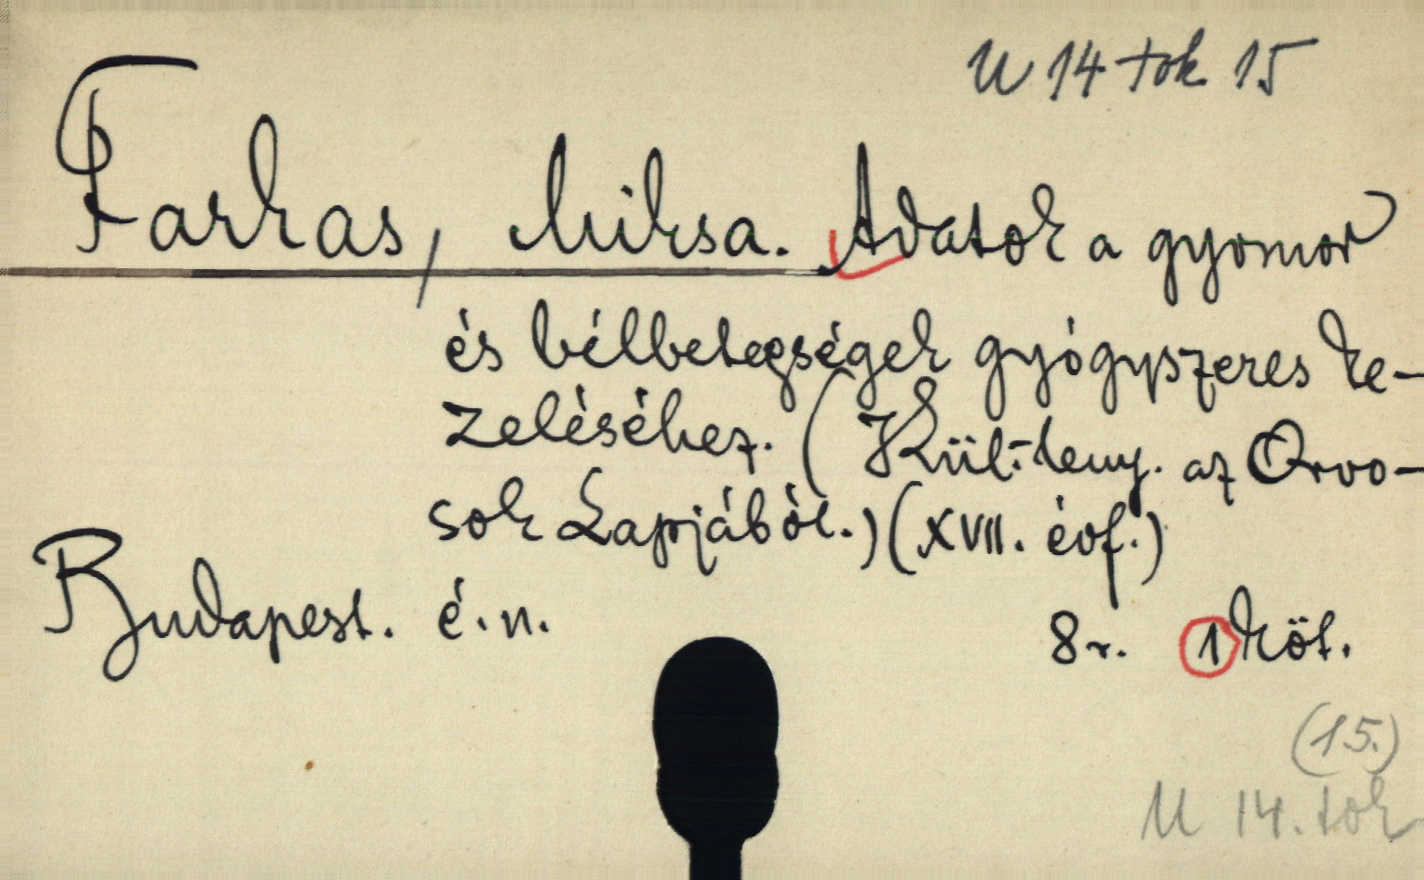 U 14 tok 15
Farkas, Miksa. Adatok a gyomor
és bélbetegségek gyógyszeres ke-
zeléséhez. (Kül.-leny. az Orvo-
sok Lapjából.) (XVII. évf.)
Budapest. é. n. 8r. 1 köt.
(15.)
U 14. tok